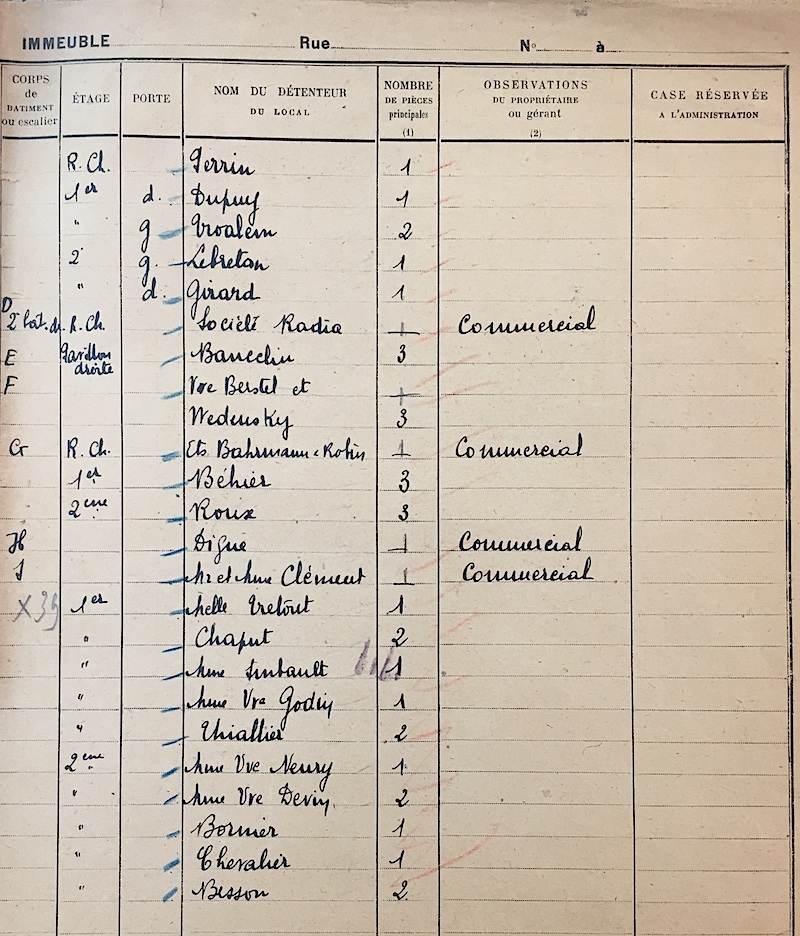 IMMEUBLE Rue N° à
CORPS de BATIMENT ou escalier
ÉTAGE
PORTE
NOM DU DÉTENTEUR DU LOCAL
NOMBRE DE PIÈCES principales (1)
OBSERVATIONS DU PROPRIÉTAIRE ou gérant (2)
CASE RÉSERVÉE A L'ADMINISTRATION
R. Ch. Perrin 1
1er d. Dupuy 1
" g 2
2e g. Lebreton 1
" d. Girard 1
D
2e bât. dr. R. Ch. Société Radia 1 Commercial
E Pavillon droite 3
F Vve Berstel et 1
Wedensky 3
G R. Ch. Ets Bahrmann & Robin 1 Commercial
1er Béhier 3
2ème Roux 3
H Digne 1 Commercial
J Mr et Mme Clément 1 Commercial
X 39 1er Melle Tretout 1
" Chaput 2
" Mme Imbault 1
" Mme Vve Godin 1
" Thiallier 2
2ème Mme Vve Neury 1
" Mme Vve Devin 2
" Bornier 1
" Chevalier 1
" Besson 2